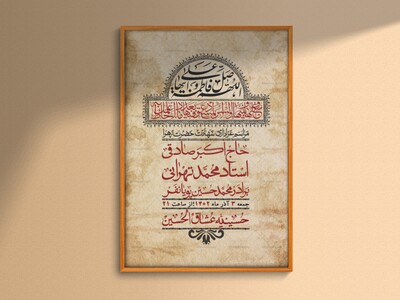 اللهم صل علی
فاطمة و ابیها
مراسم عزاداری شهادت حضرت زهرا
حاج اکبر صادقی
استاد محمد تهرانی
برادر محمد حسین پویانفر
جمعه ۳ آذر ماه ۱۴۰۲ | از ساعت ۲۱
حسینیه عشاق الحسین